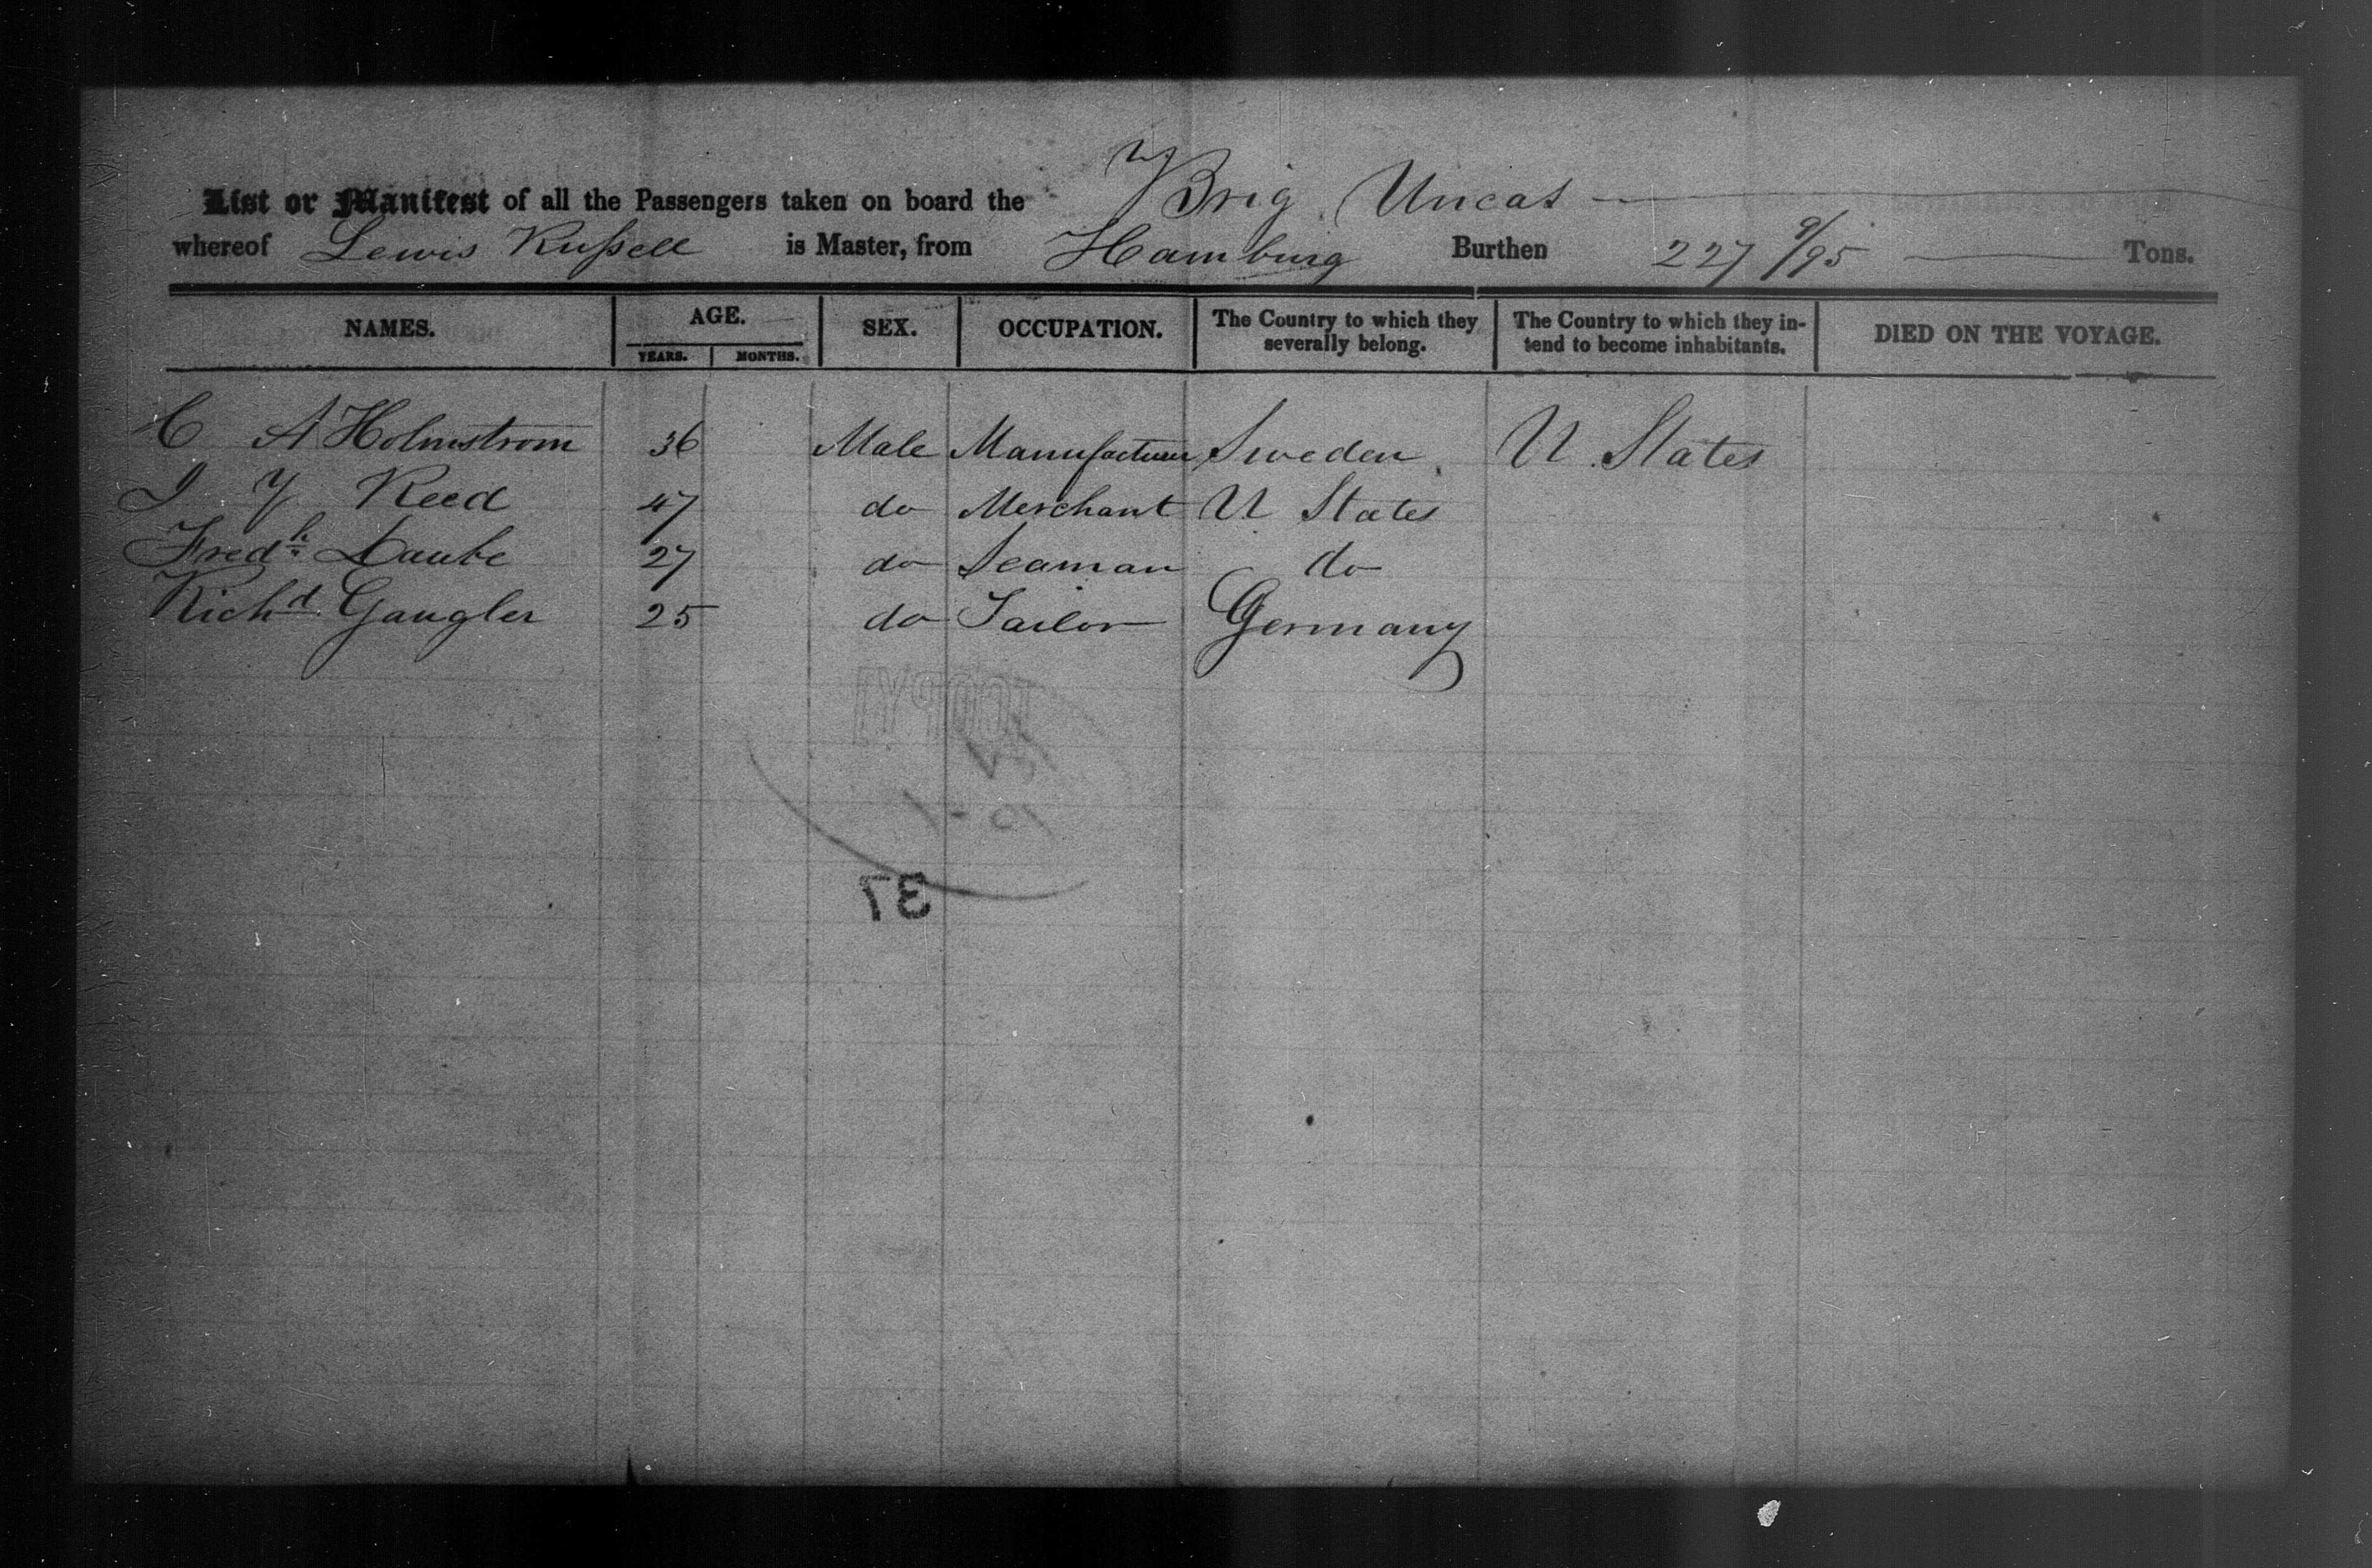 List or Manifest of all the Passengers taken on board the Brig Uncas
whereof Lewis Russell is Master, from Hamburg Burthen 227 9/95 Tons.
NAMES. AGE. SEX. OCCUPATION. The Country to which they severally belong. The Country to which they intend to become inhabitants. DIED ON THE VOYAGE.
YEARS. MONTHS.
C A Holmstrom 36 Male Manufacturer Sweden U. States
J Y Reed 47 do Merchant U States
Fredk Daube 27 do Seaman do
Richd Gangler 25 do Tailor Germany
COPY
10-1
37